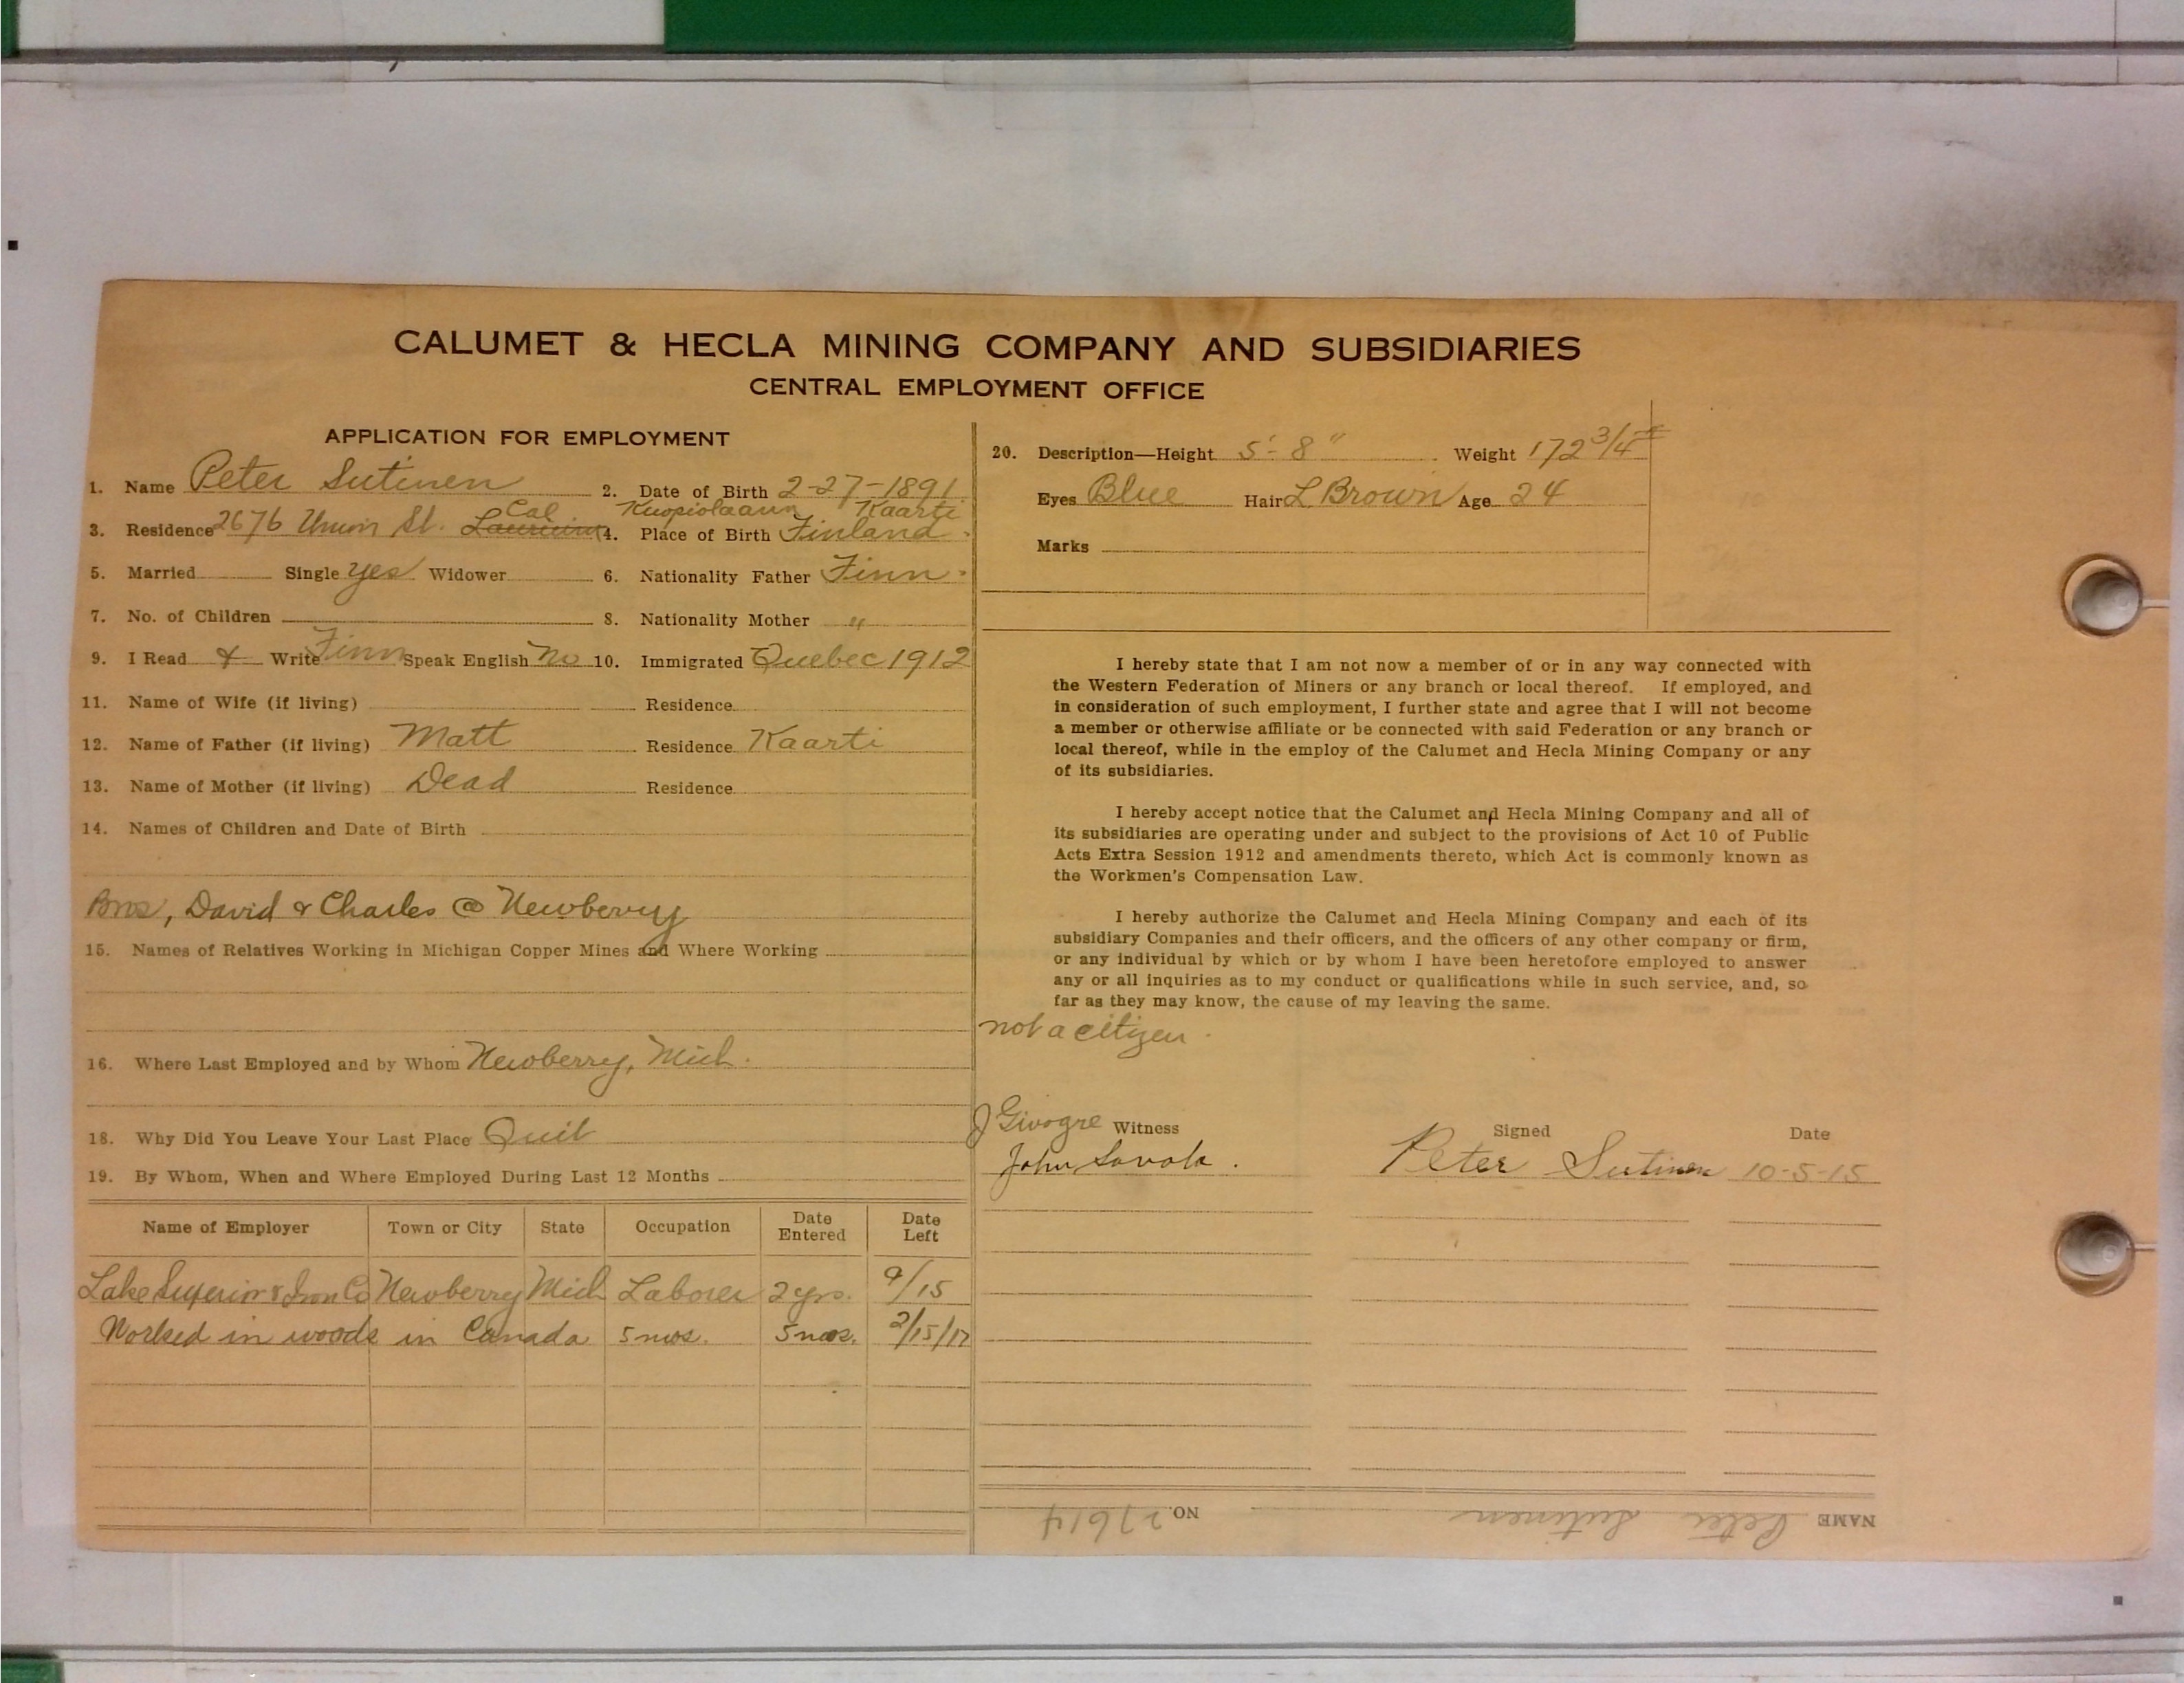 CALUMET & HECLA MINING COMPANY AND SUBSIDIARIES
CENTRAL EMPLOYMENT OFFICE
APPLICATION FOR EMPLOYMENT
1. Name Peter Sutinen 2. Date of Birth 2-27-1891
Cal Kuopiolaann Kaarti
3. Residence 2676 Union St. 4. Place of Birth Finland.
5. Married Single yes Widower 6. Nationality Father Finn.
7. No. of Children 8. Nationality Mother "
9. I Read & Write Finn Speak English No 10. Immigrated Quebec 1912
11. Name of Wife (if living) Residence
12. Name of Father (if living) Matt Residence Kaarti
13. Name of Mother (if living) Dead Residence
14. Names of Children and Date of Birth
Bros, David & Charles @ Newberry
15. Names of Relatives Working in Michigan Copper Mines and Where Working
16. Where Last Employed and by Whom Newberry, Mich.
18. Why Did You Leave Your Last Place Quit
19. By Whom, When and Where Employed During Last 12 Months
Name of Employer Town or City State Occupation Date Entered Date Left
Lake Superior & Iron Co Newberry Mich Laborer 2 yrs. 9/15
Worked in woods in Canada 5 mos. 5 mos. 2/15/17
20. Description—Height 5'-8" Weight 172 3/4 #
Eyes Blue Hair L Brown Age 24
Marks
I hereby state that I am not now a member of or in any way connected with
the Western Federation of Miners or any branch or local thereof. If employed, and
in consideration of such employment, I further state and agree that I will not become
a member or otherwise affiliate or be connected with said Federation or any branch or
local thereof, while in the employ of the Calumet and Hecla Mining Company or any
of its subsidiaries.
I hereby accept notice that the Calumet and Hecla Mining Company and all of
its subsidiaries are operating under and subject to the provisions of Act 10 of Public
Acts Extra Session 1912 and amendments thereto, which Act is commonly known as
the Workmen's Compensation Law.
I hereby authorize the Calumet and Hecla Mining Company and each of its
subsidiary Companies and their officers, and the officers of any other company or firm,
or any individual by which or by whom I have been heretofore employed to answer
any or all inquiries as to my conduct or qualifications while in such service, and, so
far as they may know, the cause of my leaving the same.
not a citizen.
J Givogre Witness Signed Date
John Savola. Peter Sutinen 10-5-15
NAME Peter Sutinen NO. 27614